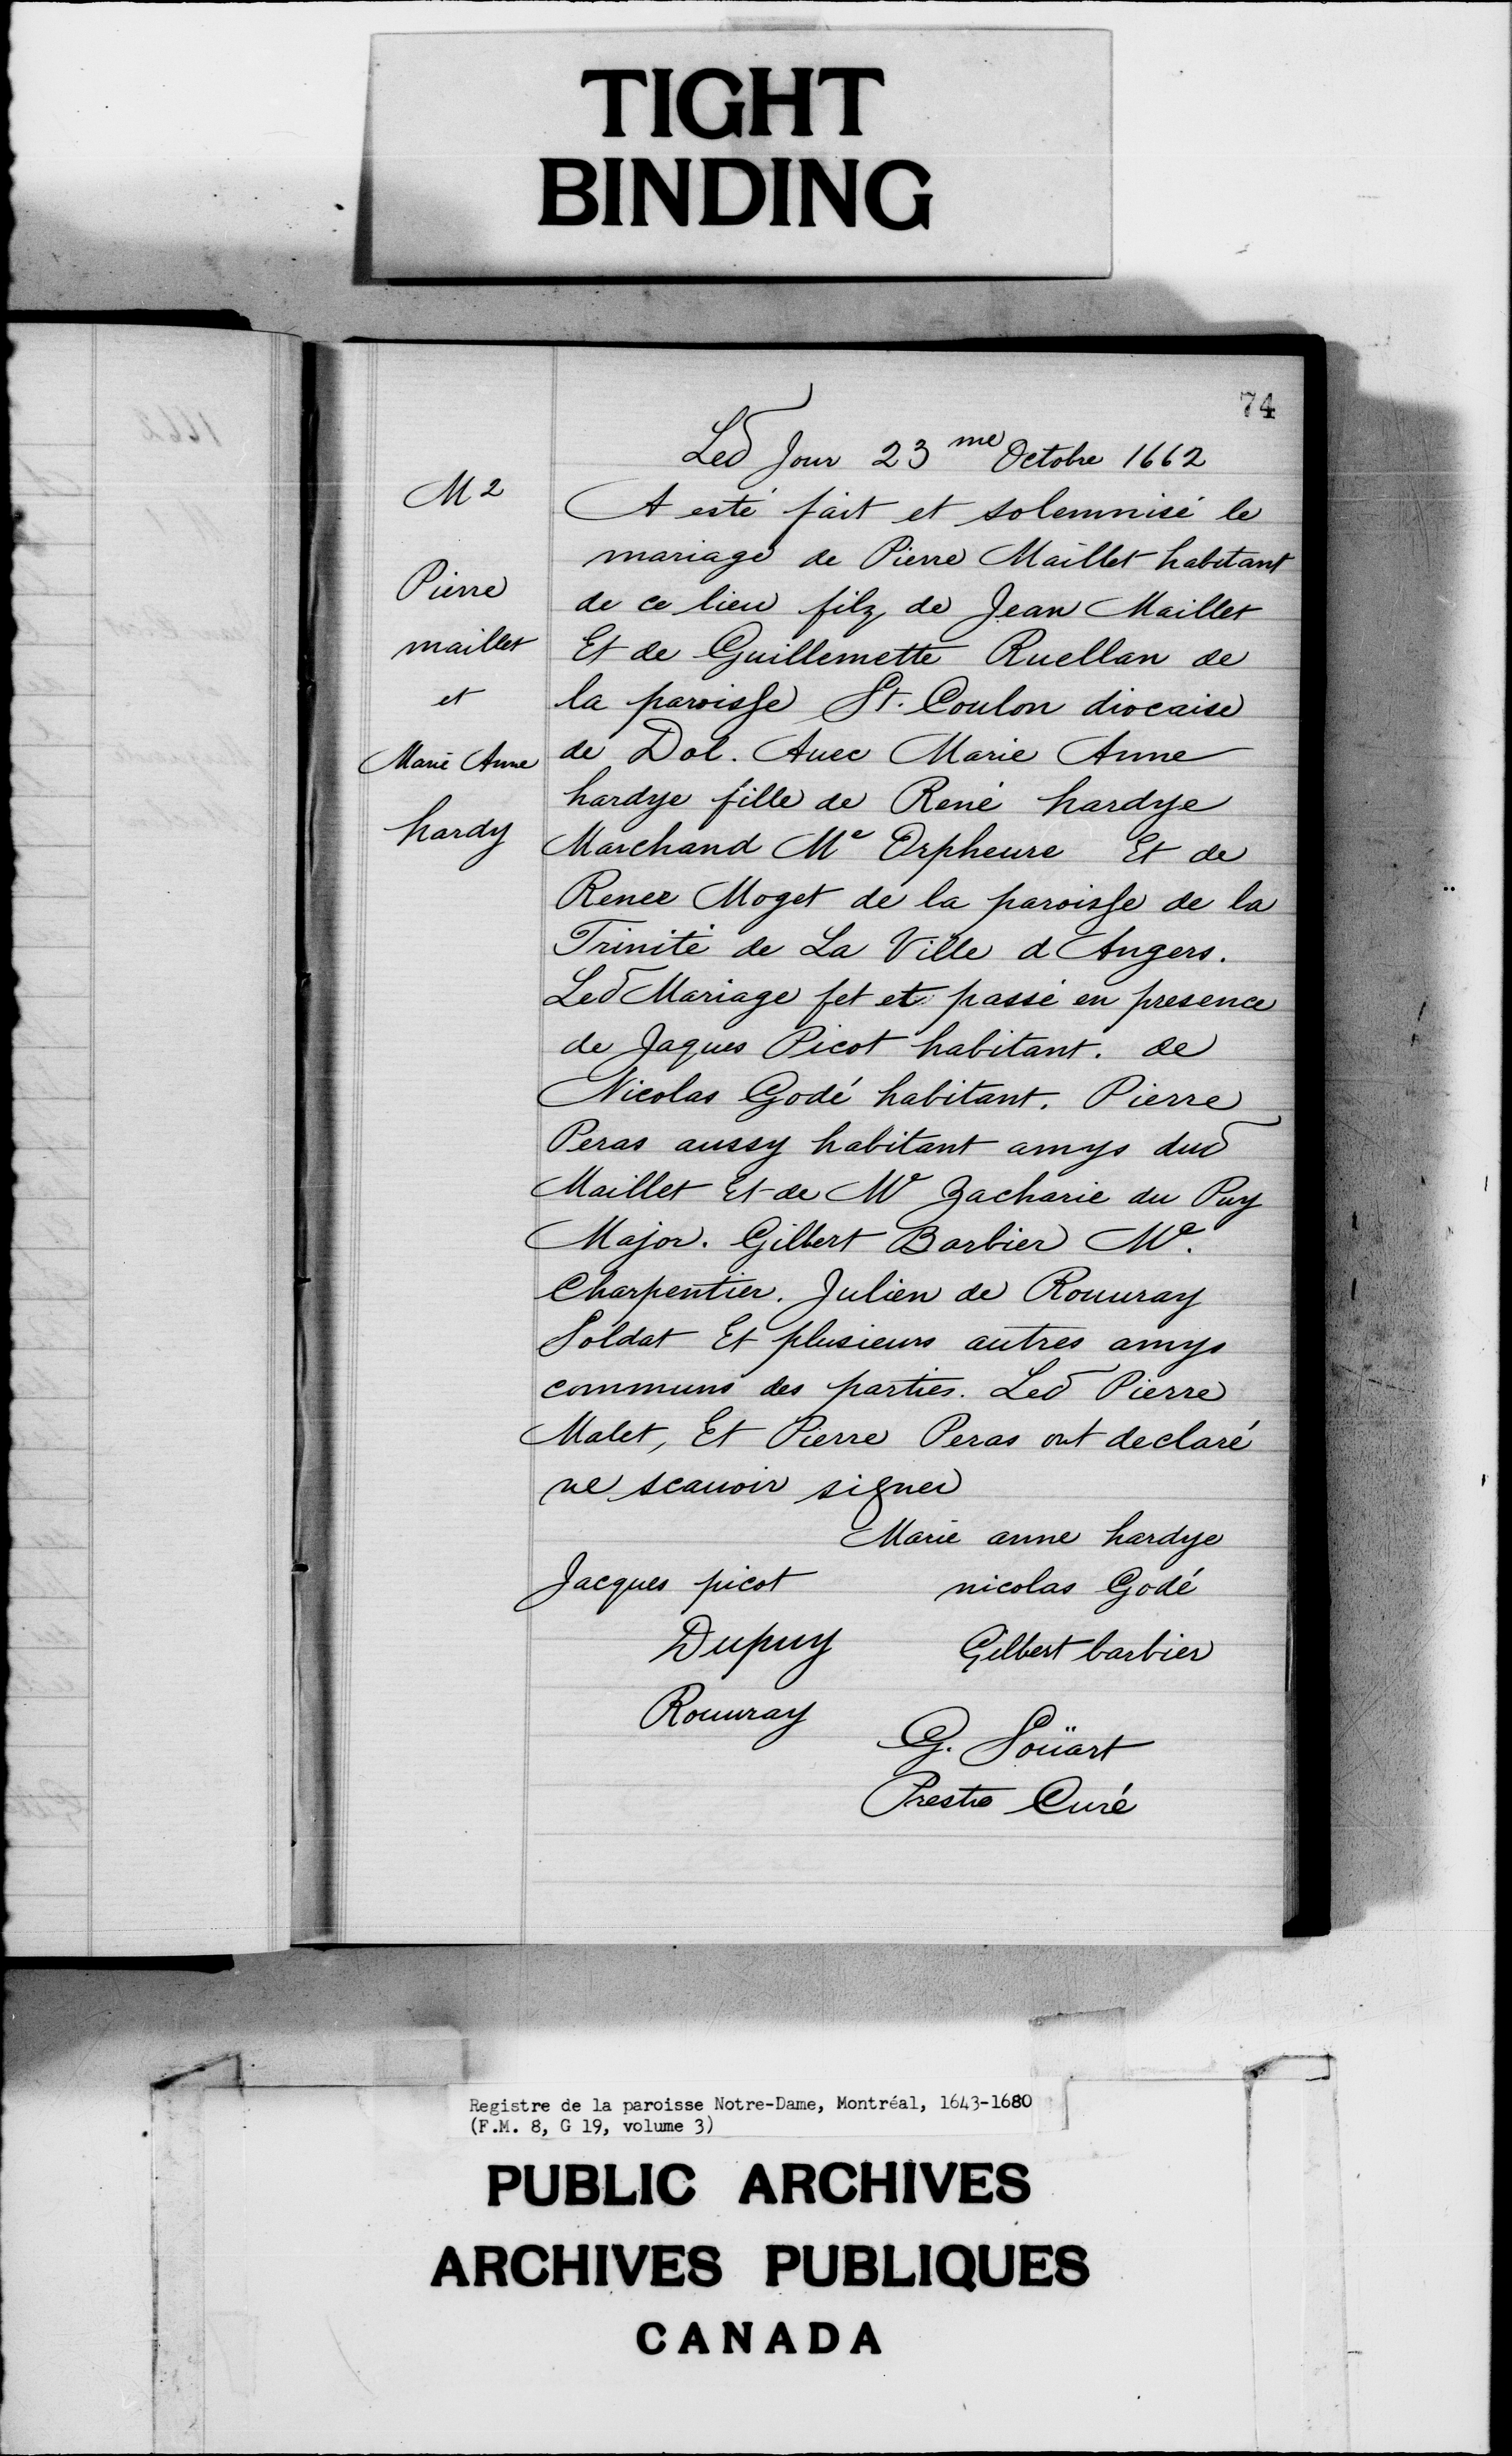 TIGHT
BINDING
74
Led Jour 23me Octobre 1662
M 2
Pierre
maillet
et
Marie Anne
hardy
A esté fait et solemnisé le
mariage de Pierre Maillet habitant
de ce lieu filz de Jean Maillet
Et de Guillemette Ruellan de
la paroisse St. Coulon diocaise
de Dol. Auec Marie Anne
hardye fille de René hardye
Marchand Me Orpheure Et de
Renee Moget de la paroisse de la
Trinité de La Ville d Angers.
Led Mariage fet et passé en presence
de Jaques Picot habitant. de
Nicolas Godé habitant. Pierre
Peras aussy habitant amys dud
Maillet Et de Mr Zacharie du Puy
Major. Gilbert Barbier Me.
Charpentier. Julien de Rouuray
Soldat Et plusieurs autres amys
communs des parties. Led Pierre
Malet, Et Pierre Peras ont declaré
ne scauoir signer
Marie anne hardye
Jacques picot nicolas Godé
Dupuy Gilbert barbier
Rouuray
G. Soüart
Prestre Curé
Registre de la paroisse Notre-Dame, Montréal, 1643-1680
(F.M. 8, G 19, volume 3)
PUBLIC ARCHIVES
ARCHIVES PUBLIQUES
CANADA